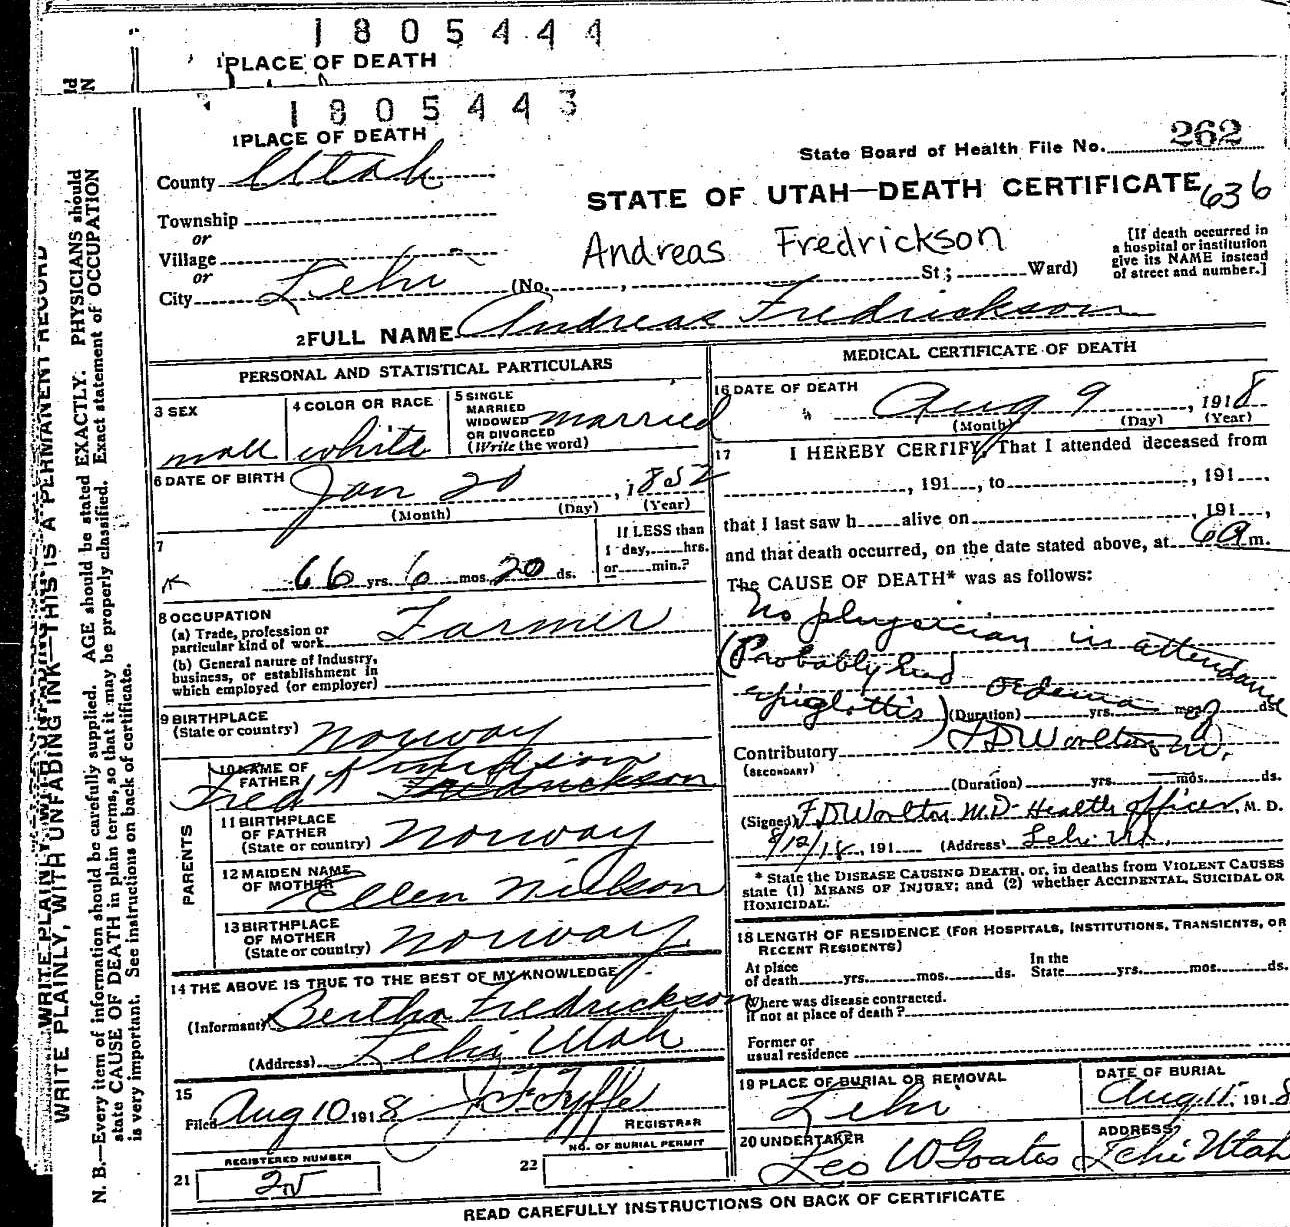 1805444
1 PLACE OF DEATH
1805443
1 PLACE OF DEATH
State Board of Health File No. 262
County Utah
STATE OF UTAH—DEATH CERTIFICATE 636
Township
or
Village
or
City Lehi
Andreas Fredrickson
(No. , St; Ward)
[If death occurred in
a hospital or institution
give its NAME instead
of street and number.]
2 FULL NAME Andreas Fredrickson
PERSONAL AND STATISTICAL PARTICULARS
3 SEX
male
4 COLOR OR RACE
white
5 SINGLE
MARRIED
WIDOWED
OR DIVORCED
(Write the word)
married
6 DATE OF BIRTH Jan 20, 1852
(Month) (Day) (Year)
7
66 yrs. 6 mos. 20 ds.
If LESS than
1 day, hrs.
or min.?
8 OCCUPATION
(a) Trade, profession or
particular kind of work Farmer
(b) General nature of Industry,
business, or establishment in
which employed (or employer)
9 BIRTHPLACE
(State or country) Norway
PARENTS
10 NAME OF
FATHER
Fred Fredrickson
11 BIRTHPLACE
OF FATHER
(State or country) Norway
12 MAIDEN NAME
OF MOTHER
Ellen Nielson
13 BIRTHPLACE
OF MOTHER
(State or country) Norway
14 THE ABOVE IS TRUE TO THE BEST OF MY KNOWLEDGE
(Informant) Bertha Fredrickson
(Address) Lehi, Utah
15
Filed Aug 10 1918 J. F. Fyffe
REGISTRAR
REGISTERED NUMBER
21 25
NO. OF BURIAL PERMIT
22
MEDICAL CERTIFICATE OF DEATH
16 DATE OF DEATH
Aug 9, 1918
(Month) (Day) (Year)
17 I HEREBY CERTIFY, That I attended deceased from
, 191 , to , 191 ,
that I last saw h alive on , 191 ,
and that death occurred, on the date stated above, at 6 A m.
The CAUSE OF DEATH* was as follows:
No physician in attendance
(Probably had oedema of
epiglottis) (Duration) yrs. mos. ds.
Contributory F D Worlton M.D.
(SECONDARY)
(Duration) yrs. mos. ds.
(Signed) F D Worlton M.D. Health officer, M. D.
8/12/18, 191 (Address) Lehi Ut.
* State the DISEASE CAUSING DEATH, or, in deaths from VIOLENT CAUSES
state (1) MEANS OF INJURY; and (2) whether ACCIDENTAL, SUICIDAL OR
HOMICIDAL.
18 LENGTH OF RESIDENCE (FOR HOSPITALS, INSTITUTIONS, TRANSIENTS, OR
RECENT RESIDENTS)
At place
of death yrs. mos. ds.
In the
State yrs. mos. ds.
Where was disease contracted.
If not at place of death?
Former or
usual residence
19 PLACE OF BURIAL OR REMOVAL
Lehi
DATE OF BURIAL
Aug 11, 1918
20 UNDERTAKER
Leo W Goates
ADDRESS
Lehi Utah
READ CAREFULLY INSTRUCTIONS ON BACK OF CERTIFICATE
WRITE PLAINLY, WITH UNFADING INK—THIS IS A PERMANENT RECORD
N. B.—Every item of information should be carefully supplied. AGE should be stated EXACTLY. PHYSICIANS should
state CAUSE OF DEATH in plain terms, so that it may be properly classified. Exact statement of OCCUPATION
is very important. See instructions on back of certificate.